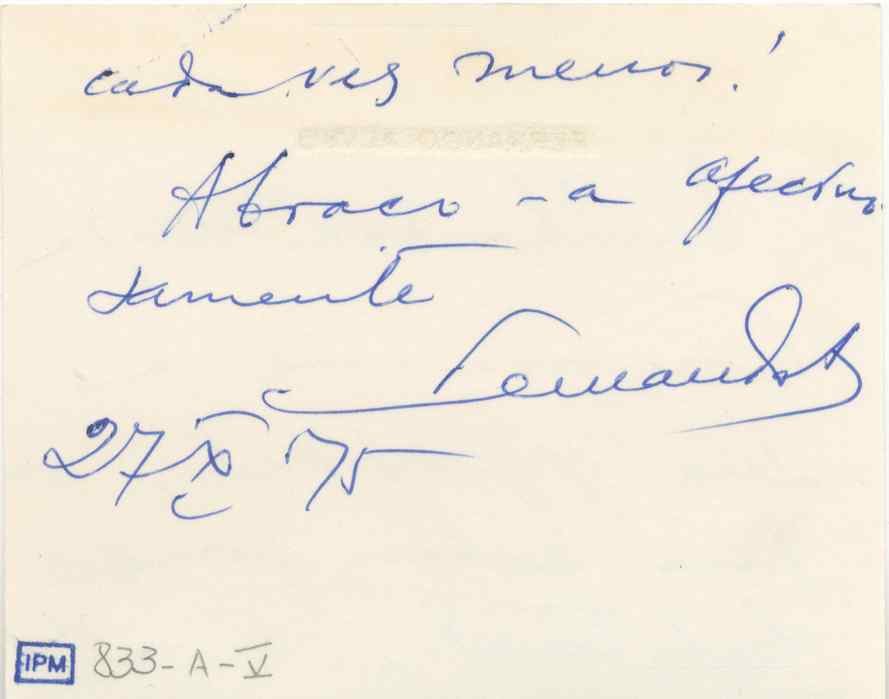 cada vez menos!
Abraço-a afectuo-
samente
Fernando A
27 X 75
IPM 833-A-V